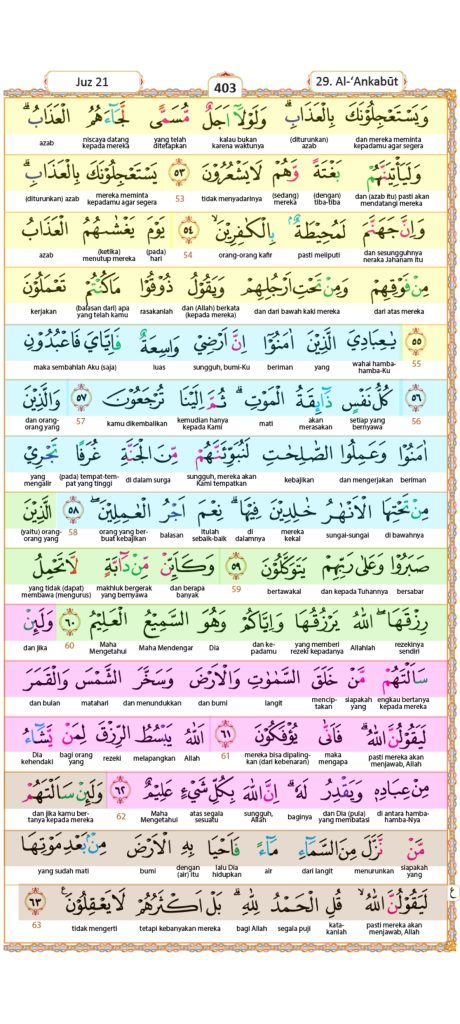 Juz 21 403 29. Al-‘Ankabūt
وَيَسْتَعْجِلُوْنَكَ بِالْعَذَابِۗ وَلَوْلَآ اَجَلٌ مُّسَمًّى لَّجَاۤءَهُمُ الْعَذَابُۗ
dan mereka meminta kepadamu agar segera (diturunkan) azab kalau bukan karena waktunya yang telah ditetapkan niscaya datang kepada mereka azab
وَلَيَأْتِيَنَّهُمْ بَغْتَةً وَّهُمْ لَا يَشْعُرُوْنَ ٥٣ يَسْتَعْجِلُوْنَكَ بِالْعَذَابِۗ
dan (azab itu) pasti akan mendatangi mereka (dengan) tiba-tiba (sedang) mereka tidak menyadarinya 53 mereka meminta kepadamu agar segera (diturunkan) azab
وَاِنَّ جَهَنَّمَ لَمُحِيْطَةٌ ۢ بِالْكٰفِرِيْنَۙ ٥٤ يَوْمَ يَغْشٰىهُمُ الْعَذَابُ
dan sesungguhnya neraka Jahanam itu pasti meliputi orang-orang kafir 54 (pada) hari (ketika) menutup mereka azab
مِنْ فَوْقِهِمْ وَمِنْ تَحْتِ اَرْجُلِهِمْ وَيَقُوْلُ ذُوْقُوْا مَا كُنْتُمْ تَعْمَلُوْنَ
dari atas mereka dan dari bawah kaki mereka dan (Allah) berkata (kepada mereka) rasakanlah (balasan dari) apa yang telah kamu kerjakan
٥٥ يٰعِبَادِيَ الَّذِيْنَ اٰمَنُوْٓا اِنَّ اَرْضِيْ وَاسِعَةٌ فَاِيَّايَ فَاعْبُدُوْنِ
55 wahai hamba-hamba-Ku yang beriman sungguh, bumi-Ku luas maka sembahlah Aku (saja)
٥٦ كُلُّ نَفْسٍ ذَاۤىِٕقَةُ الْمَوْتِۗ ثُمَّ اِلَيْنَا تُرْجَعُوْنَ ٥٧ وَالَّذِيْنَ
56 setiap yang bernyawa akan merasakan mati kemudian hanya kepada Kami kamu dikembalikan 57 dan orang-orang yang
اٰمَنُوْا وَعَمِلُوا الصّٰلِحٰتِ لَنُبَوِّئَنَّهُمْ مِّنَ الْجَنَّةِ غُرَفًا تَجْرِيْ
beriman dan mengerjakan kebajikan sungguh, mereka akan Kami tempatkan di dalam surga (pada) tempat-tempat yang tinggi yang mengalir
مِنْ تَحْتِهَا الْاَنْهٰرُ خٰلِدِيْنَ فِيْهَاۗ نِعْمَ اَجْرُ الْعٰمِلِيْنَۖ ٥٨ الَّذِيْنَ
di bawahnya sungai-sungai mereka kekal di dalamnya Itulah sebaik-baik balasan orang yang berbuat kebajikan 58 (yaitu) orang-orang yang
صَبَرُوْا وَعَلٰى رَبِّهِمْ يَتَوَكَّلُوْنَ ٥٩ وَكَاَيِّنْ مِّنْ دَاۤبَّةٍ لَّا تَحْمِلُ
bersabar dan kepada Tuhannya bertawakal 59 dan berapa banyak makhluk bergerak yang bernyawa yang tidak (dapat) membawa (mengurus)
رِزْقَهَاۖ اللّٰهُ يَرْزُقُهَا وَاِيَّاكُمْ وَهُوَ السَّمِيْعُ الْعَلِيْمُ ٦٠ وَلَىِٕنْ
rezekinya sendiri Allahlah yang memberi rezeki kepadanya dan kepadamu Dia Maha Mendengar Maha Mengetahui 60 dan jika
سَاَلْتَهُمْ مَّنْ خَلَقَ السَّمٰوٰتِ وَالْاَرْضَ وَسَخَّرَ الشَّمْسَ وَالْقَمَرَ
engkau bertanya kepada mereka siapakah yang menciptakan langit dan bumi dan menundukkan matahari dan bulan
لَيَقُوْلُنَّ اللّٰهُۗ فَاَنّٰى يُؤْفَكُوْنَ ٦١ اَللّٰهُ يَبْسُطُ الرِّزْقَ لِمَنْ يَّشَاۤءُ
pasti mereka akan menjawab, Allah maka mengapa mereka bisa dipalingkan (dari kebenaran) 61 Allah melapangkan rezeki bagi orang yang Dia kehendaki
مِنْ عِبَادِهٖ وَيَقْدِرُ لَهٗۗ اِنَّ اللّٰهَ بِكُلِّ شَيْءٍ عَلِيْمٌ ٦٢ وَلَىِٕنْ سَاَلْتَهُمْ
di antara hamba-hamba-Nya dan Dia (pula) yang membatasi baginya sungguh, Allah atas segala sesuatu Maha Mengetahui 62 dan jika kamu bertanya kepada mereka
مَّنْ نَّزَّلَ مِنَ السَّمَاۤءِ مَاۤءً فَاَحْيَا بِهِ الْاَرْضَ مِنْۢ بَعْدِ مَوْتِهَا
siapakah yang menurunkan dari langit air lalu Dia hidupkan dengan (air) itu bumi yang sudah mati
لَيَقُوْلُنَّ اللّٰهُۗ قُلِ الْحَمْدُ لِلّٰهِۗ بَلْ اَكْثَرُهُمْ لَا يَعْقِلُوْنَ ٦٣ ع
pasti mereka akan menjawab, Allah katakanlah segala puji bagi Allah tetapi kebanyakan mereka tidak mengerti 63